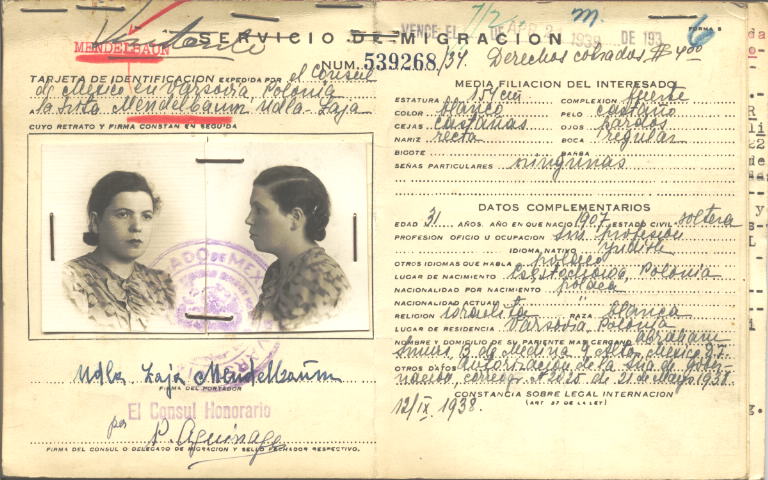 SERVICIO DE MIGRACION
MENDELBAUN
NUM. 539268/37. Derechos cobrados $ 4.00
VENCE EL DE 193
1939
FORMA 5
6
TARJETA DE IDENTIFICACION EXPEDIDA POR el Consul
de México en Varsovia, Polonia
a la Srta Mendelbaum Udla-Laja
CUYO RETRATO Y FIRMA CONSTAN EN SEGUIDA
Udla Laja Mendelbaum
FIRMA DEL PORTADOR
El Consul Honorario
P. Aguinaga
FIRMA DEL CONSUL O DELEGADO DE MIGRACION Y SELLO FECHADOR RESPECTIVO.
MEDIA FILIACION DEL INTERESADO
ESTATURA 154 cm COMPLEXION fuerte
COLOR blanco PELO castaño
CEJAS castañas OJOS pardos
NARIZ recta BOCA regular
BIGOTE BARBA
SEÑAS PARTICULARES ningunas
DATOS COMPLEMENTARIOS
EDAD 31 AÑOS. AÑO EN QUE NACIO 1907 ESTADO CIVIL soltera
PROFESION OFICIO U OCUPACION sin profesión
IDIOMA NATIVO yidish
OTROS IDIOMAS QUE HABLA polaco
LUGAR DE NACIMIENTO Polonia
NACIONALIDAD POR NACIMIENTO polaca
NACIONALIDAD ACTUAL
RELIGION israelita RAZA blanca
LUGAR DE RESIDENCIA Varsovia, Polonia
NOMBRE Y DOMICILIO DE SU PARIENTE MAS CERCANO Abraham
de Medina 9 México D.F.
OTROS DATOS Autorización de la Sria de Gober-
nación, de 21 de Mayo 1938.
CONSTANCIA SOBRE LEGAL INTERNACION
(ART 57 DE LA LEY)
12/IX 1938.